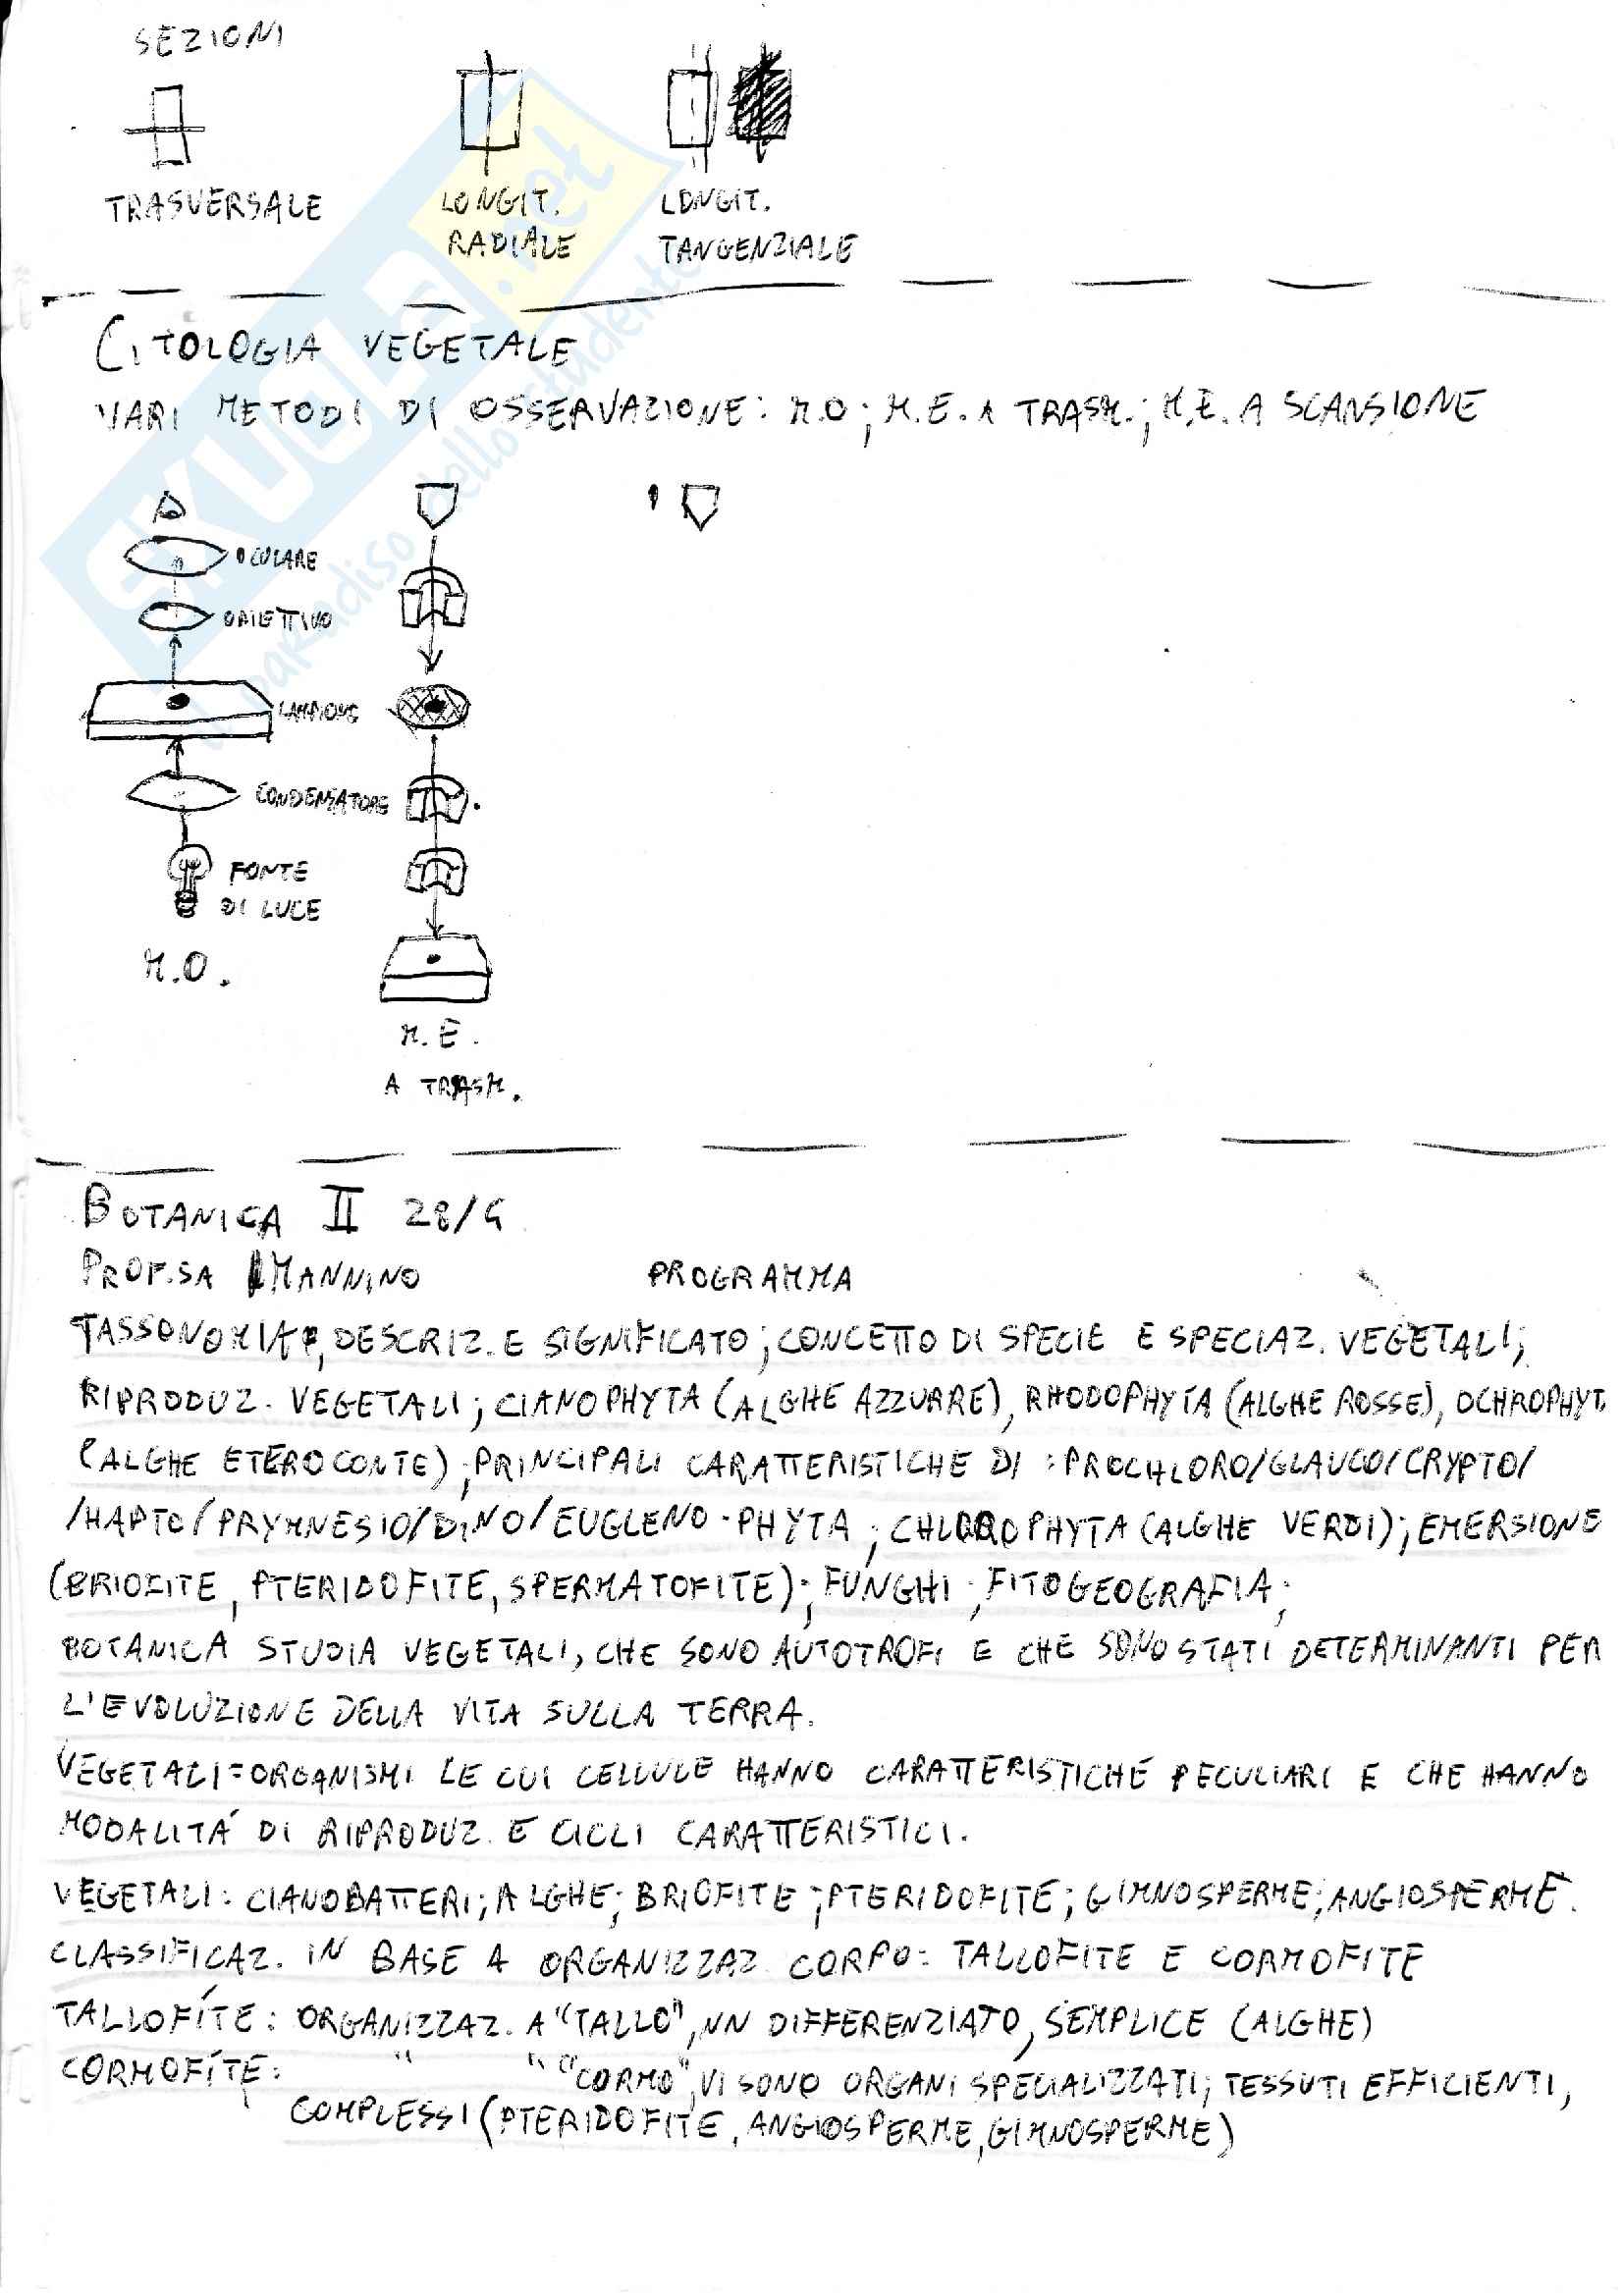 SEZIONI
TRASVERSALE
LONGIT.
RADIALE
LONGIT.
TANGENZIALE
CITOLOGIA VEGETALE
VARI METODI DI OSSERVAZIONE: M.O; M.E. A TRASM.; M.E. A SCANSIONE
OCULARE
OBIETTIVO
CONDENSATORE
FONTE
DI LUCE
M.O.
M.E.
A TRASM.
BOTANICA II 28/4
PROF.SA MANNINO PROGRAMMA
TASSONOMIA, DESCRIZ. E SIGNIFICATO; CONCETTO DI SPECIE E SPECIAZ. VEGETALI;
RIPRODUZ. VEGETALI; CIANOPHYTA (ALGHE AZZURRE), RHODOPHYTA (ALGHE ROSSE), OCHROPHYT.
(ALGHE ETEROCONTE); PRINCIPALI CARATTERISTICHE DI: PROCHLORO/GLAUCO/CRYPTO/
/HAPTO/PRYMNESIO/DINO/EUGLENO-PHYTA; CHLOROPHYTA (ALGHE VERDI); EMERSIONE
(BRIOFITE, PTERIDOFITE, SPERMATOFITE); FUNGHI; FITOGEOGRAFIA;
BOTANICA STUDIA VEGETALI, CHE SONO AUTOTROFI E CHE SONO STATI DETERMINANTI PER
L'EVOLUZIONE DELLA VITA SULLA TERRA.
VEGETALI=ORGANISMI LE CUI CELLULE HANNO CARATTERISTICHE PECULIARI E CHE HANNO
MODALITÁ DI RIPRODUZ. E CICLI CARATTERISTICI.
VEGETALI: CIANOBATTERI; ALGHE; BRIOFITE; PTERIDOFITE; GIMNOSPERME; ANGIOSPERME.
CLASSIFICAZ. IN BASE A ORGANIZZAZ. CORPO: TALLOFITE E CORMOFITE
TALLOFÍTE: ORGANIZZAZ. A "TALLO", NN DIFFERENZIATO, SEMPLICE (ALGHE)
CORMOFÍTE: " " "CORMO", VI SONO ORGANI SPECIALIZZATI; TESSUTI EFFICIENTI,
COMPLESSI (PTERIDOFITE, ANGIOSPERME, GIMNOSPERME)
SKUOLA.net
il paradiso dello studente